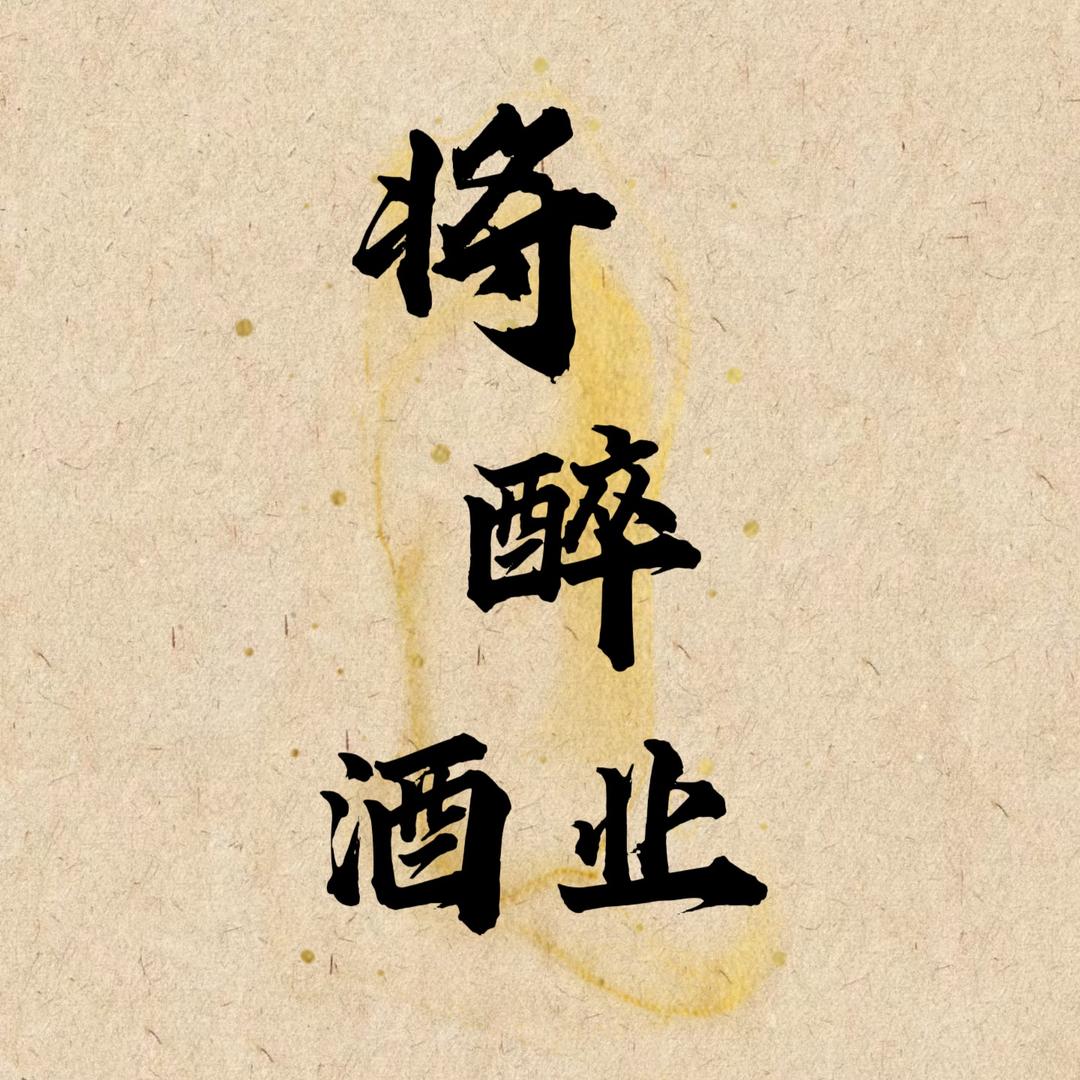 将
醉
酒业